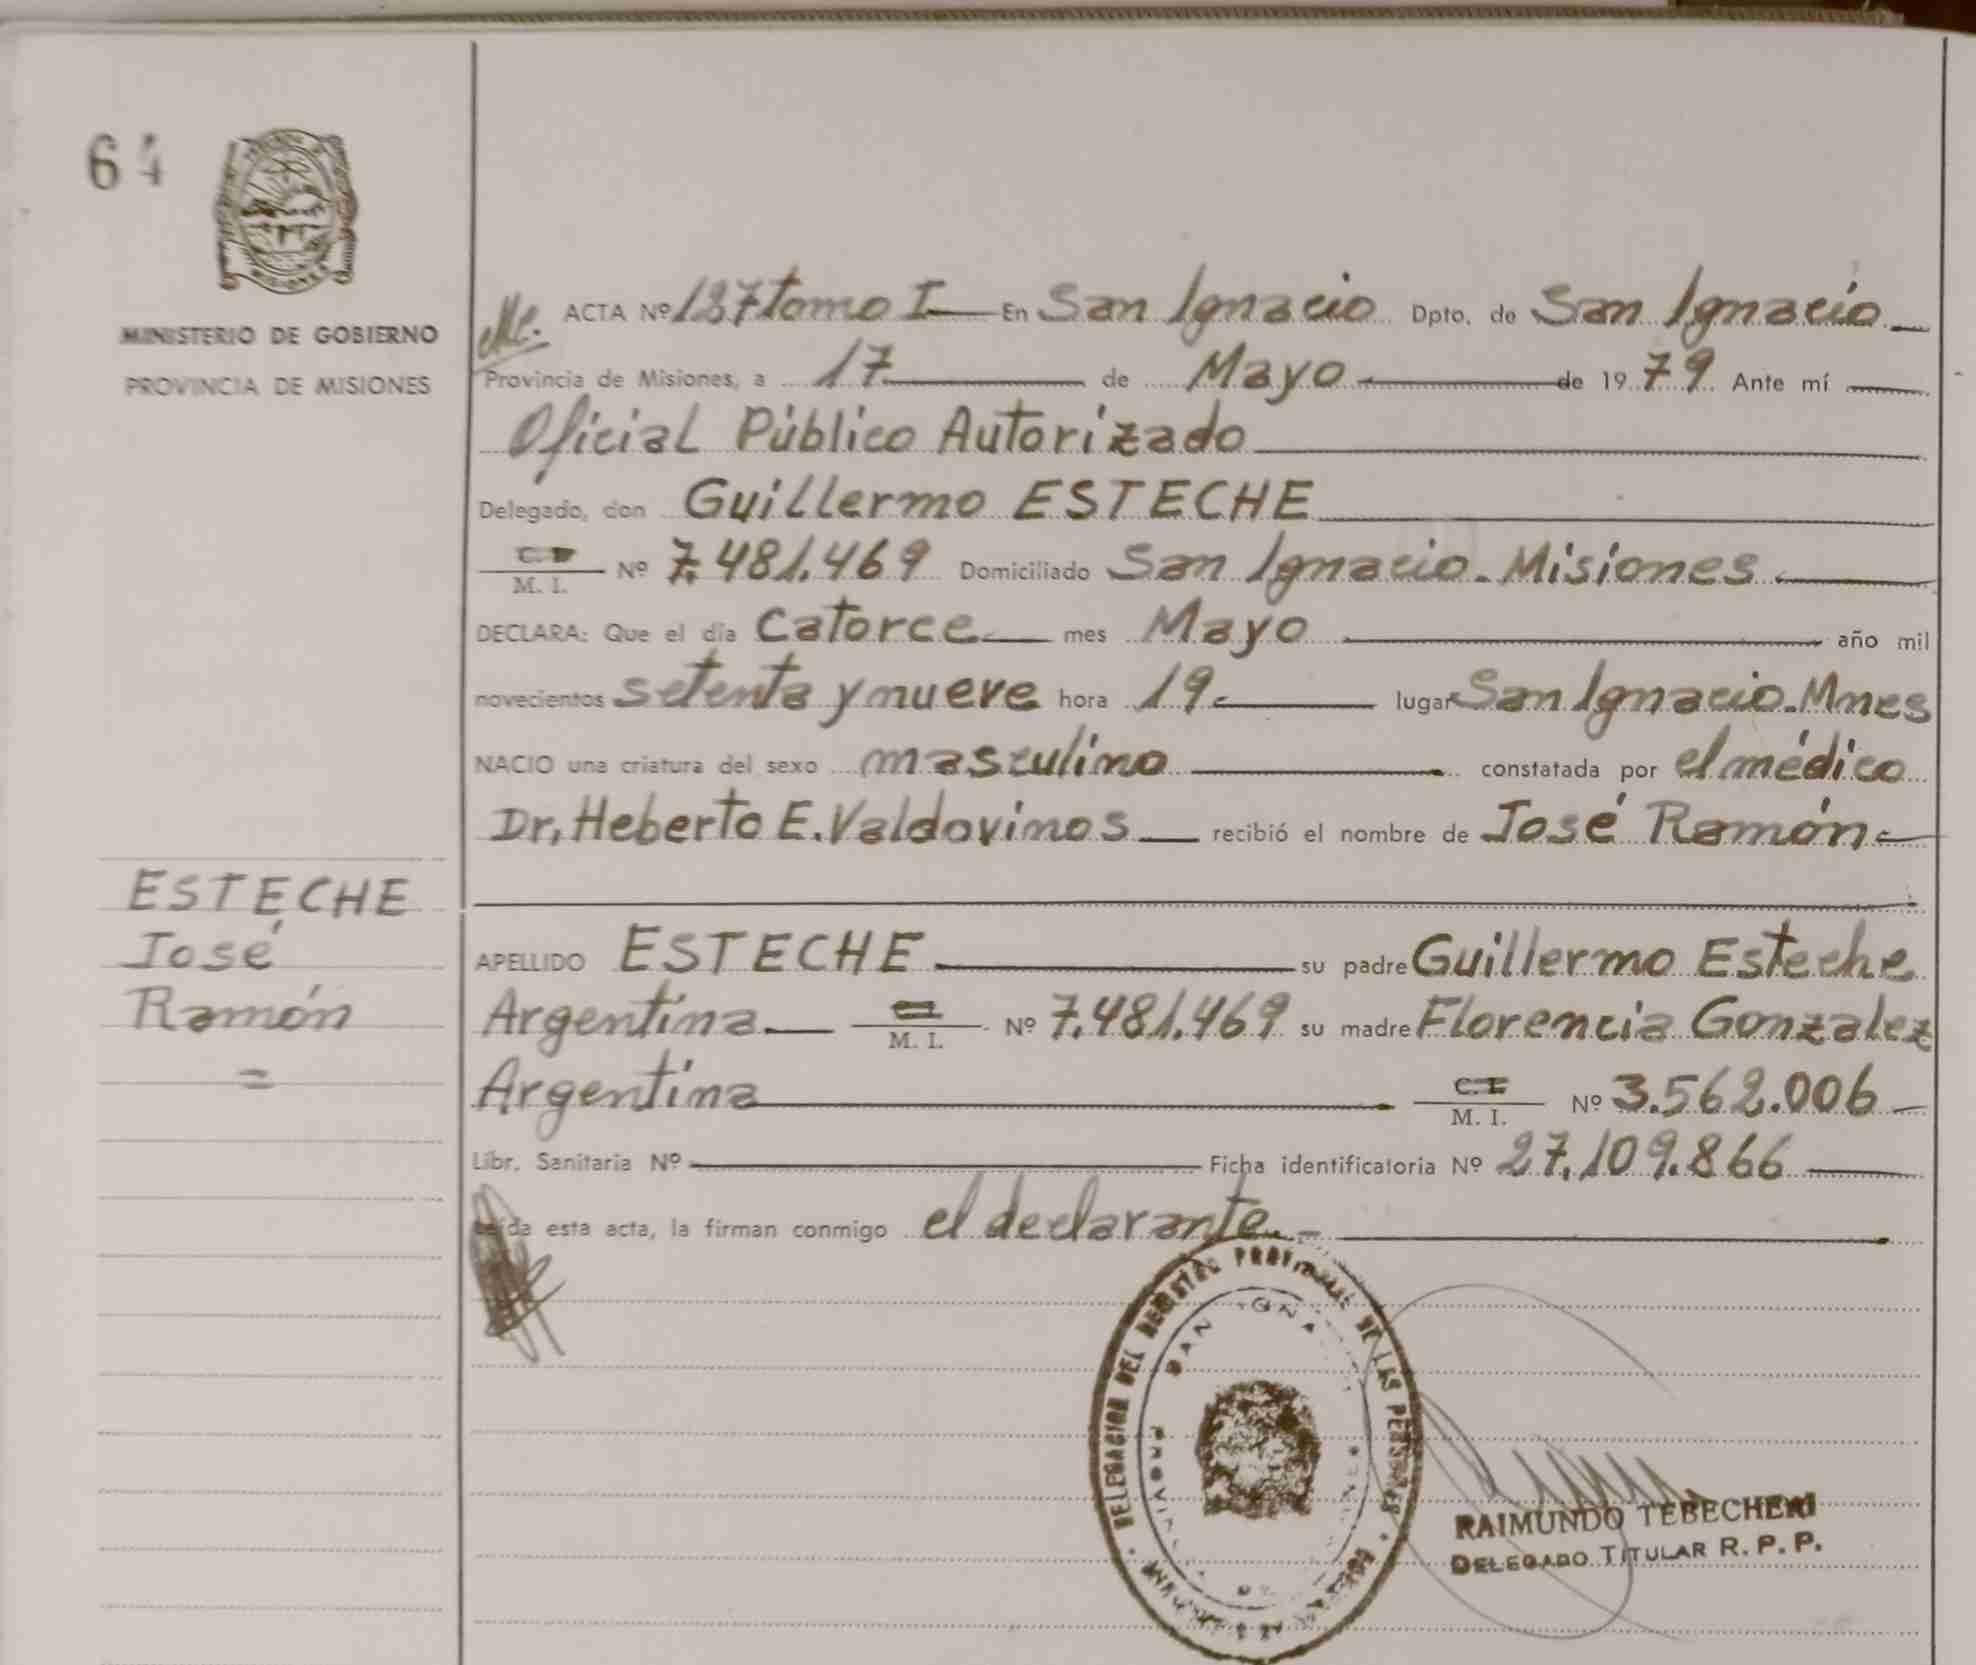 64
MISIONES
MINISTERIO DE GOBIERNO
PROVINCIA DE MISIONES
ESTECHE
José
Ramón
=
ACTA Nº 137 tomo I — En San Ignacio Dpto. de San Ignacio
Provincia de Misiones, a 17 de Mayo de 1979 Ante mí
Oficial Público Autorizado
Delegado, don Guillermo ESTECHE
C. I. M. I. Nº 7.481.469 Domiciliado San Ignacio - Misiones
DECLARA: Que el día Catorce mes Mayo año mil
novecientos setenta y nueve hora 19 lugar San Ignacio - Mnes
NACIO una criatura del sexo masculino constatada por el médico
Dr, Heberto E. Valdovinos recibió el nombre de José Ramón
APELLIDO ESTECHE su padre Guillermo Esteche
Argentina M. I. Nº 7.481.469 su madre Florencia Gonzalez
Argentina C. I. M. I. Nº 3.562.006
Libr. Sanitaria Nº Ficha identificatoria Nº 27.109.866
Leída esta acta, la firman conmigo el declarante. -
DELEGACION DEL REGISTRO PROVINCIAL DE LAS PERSONAS
RAIMUNDO TEBECHERI
DELEGADO TITULAR R. P. P.